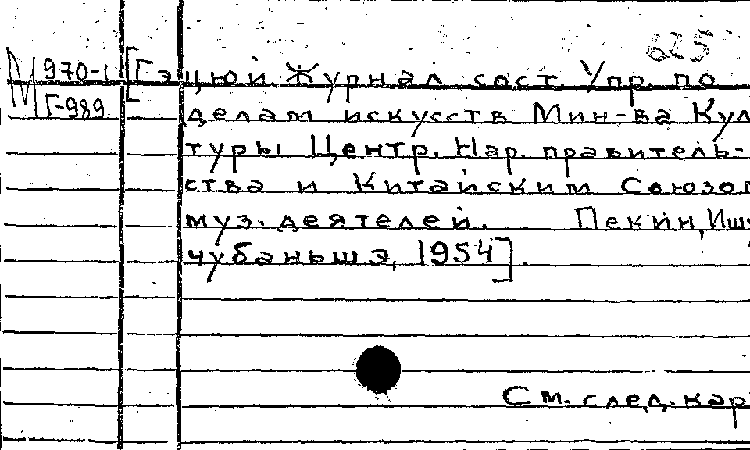 625
М 970-1 [Гэцюй Журнал сост Упр. по
Г-989 делам искусств Мин-ва Кул
туры Центр. Нар. правитель-
ства и Китайским Союзом
муз. деятелей. Пекин, Ишу
чубаньшэ, 1954].
См. след. кар